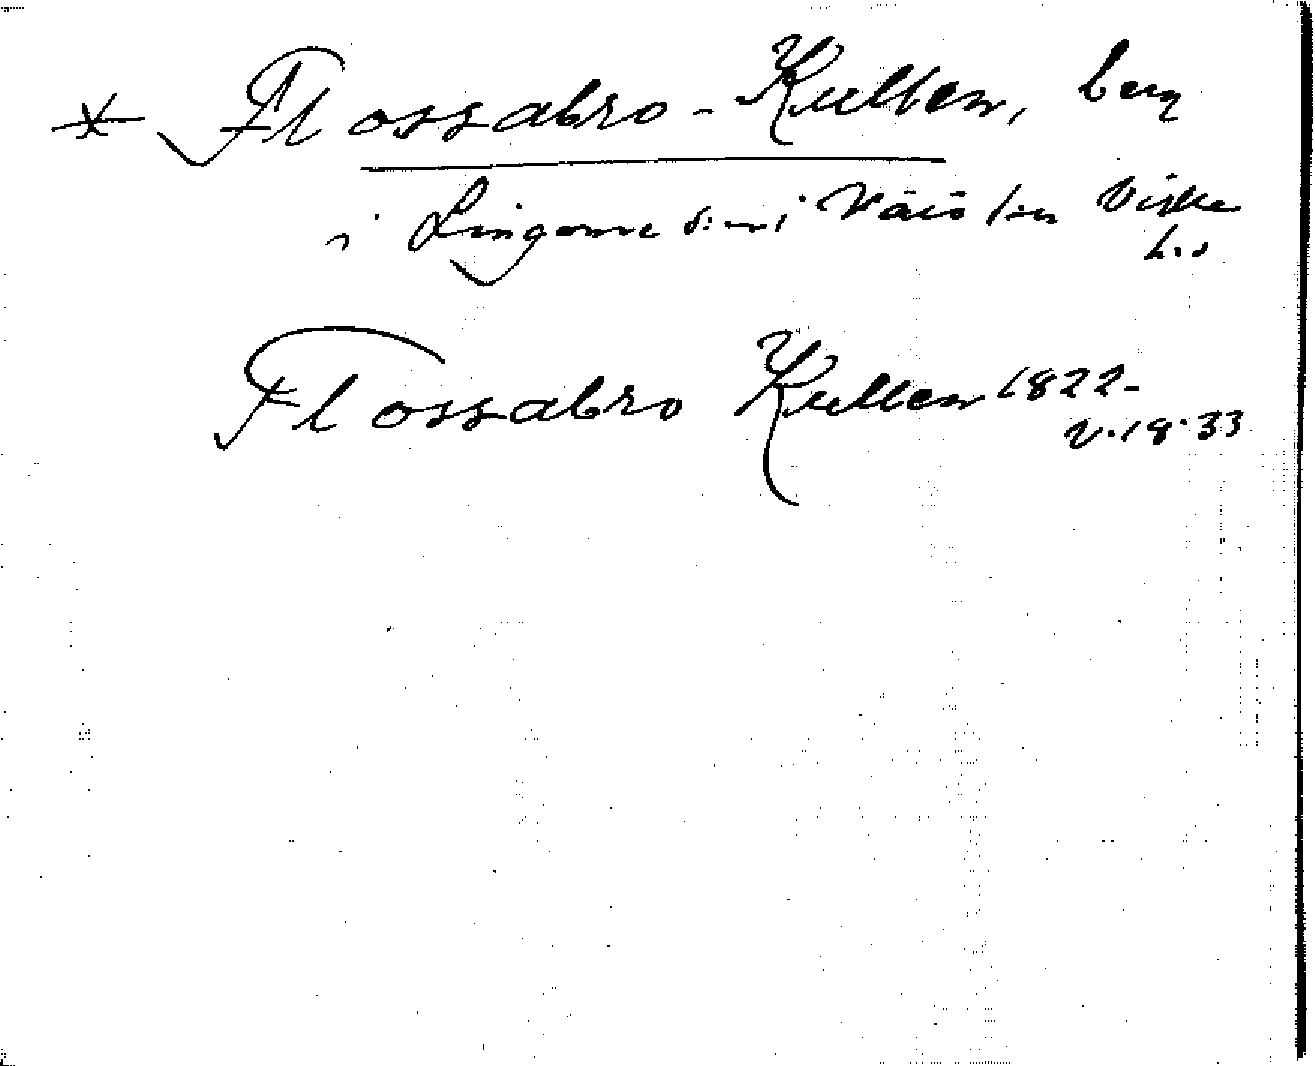 * Flossabro-Kullen, berg
i Lingome s:n i Väıs l:n Viske
h.s
Flossabro Kullen 1822
V. 18. 33